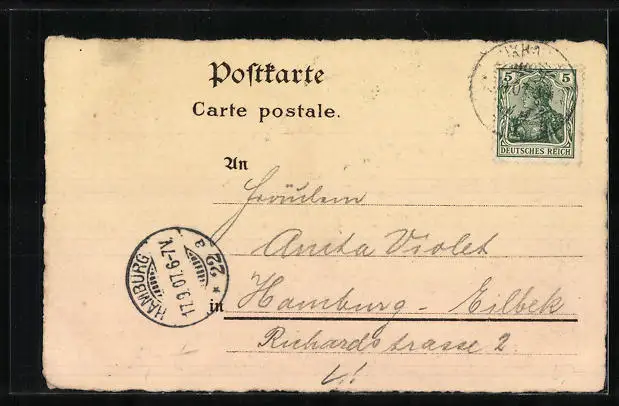 Postkarte
Carte postale.
5 5
DEUTSCHES REICH
An
Fräulein
Anita Violet
in Hamburg-Eilbek
Richardstrasse 2
HAMBURG
17.9.07.6-7V.
* 22 a